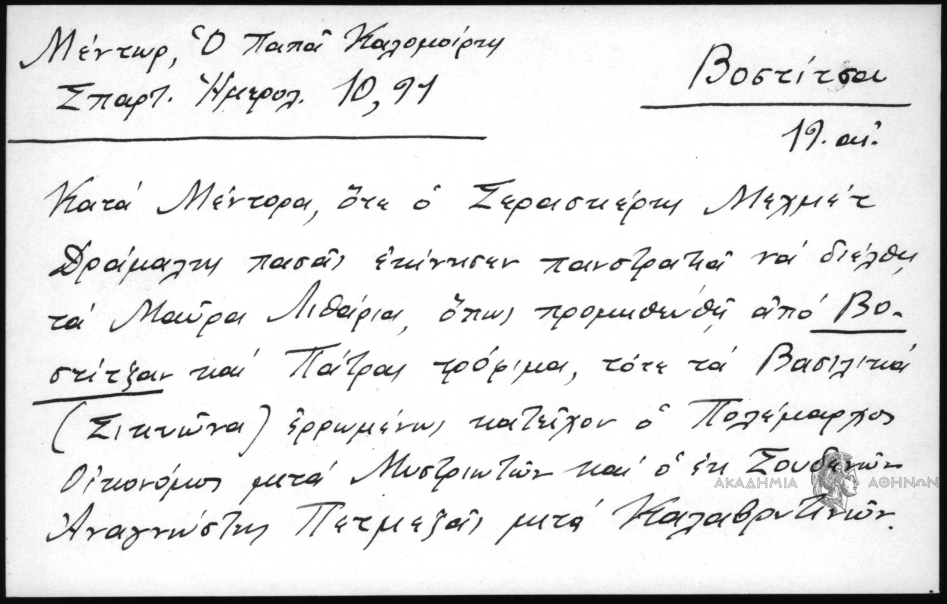 Μέντωρ, Ὁ Παπᾶ Καλομοίρης
Σπαρτ. Ἡμερολ. 10, 91
Βοστίτσα
19. αἰ.
Κατά Μέντορα, ὅτε ὁ Σερασκέρης Μεχμέτ
Δράμαλης πασᾶς ἐκίνησεν πανστρατιᾶ νά διέλθῃ
τά Μαῦρα Λιθάρια, ὅπως προμηθευθῇ ἀπό Βο-
στίτζαν καί Πάτρας τρόφιμα, τότε τά Βασιλικά
(Σικυῶνα) ἐρρωμένως κατεῖχον ὁ Πολέμαρχος
Οἰκονόμος μετά Μυστριωτῶν καί ὁ ἐκ Σουδενῶν
ΑΚΑΔΗΜΙΑ ΑΘΗΝΩΝ
Ἀναγνώστης Πετμεζᾶς μετά Καλαβρυτινῶν.